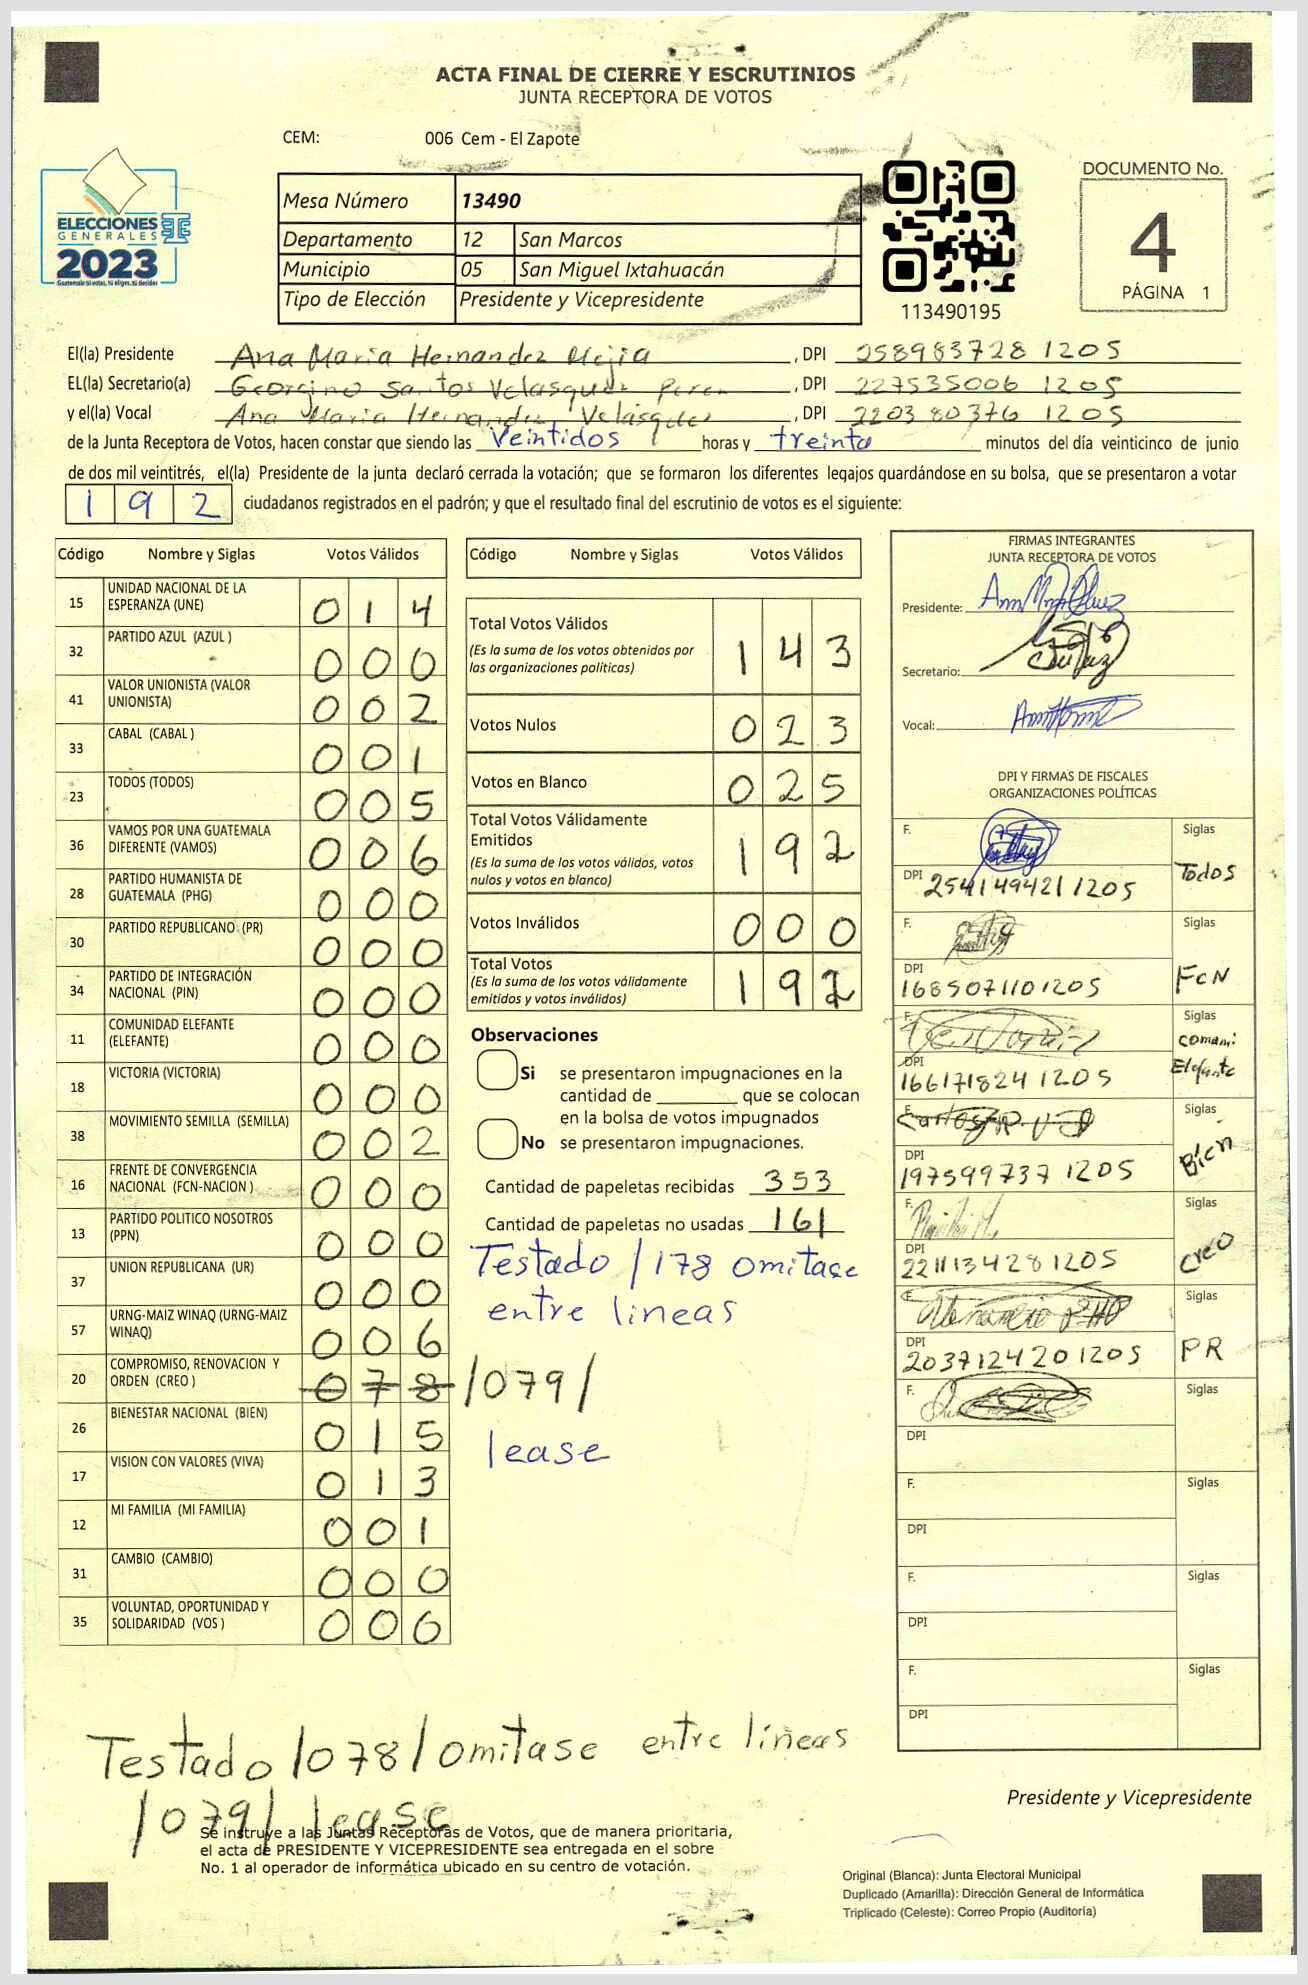 ACTA FINAL DE CIERRE Y ESCRUTINIOS
JUNTA RECEPTORA DE VOTOS
CEM: 006 Cem - El Zapote
ELECCIONES
GENERALES
2023
Guatemala tú votas, tú eliges, tú decides
Mesa Número 13490
Departamento 12 San Marcos
Municipio 05 San Miguel Ixtahuacán
Tipo de Elección Presidente y Vicepresidente
113490195
DOCUMENTO No.
4
PÁGINA 1
El(la) Presidente Ana Maria Hernandez Mejia , DPI 258983728 1205
EL(la) Secretario(a) Georgino Santos Velasquez Perez , DPI 227535006 1205
y el(la) Vocal Ana Maria Hernandez Velásquez , DPI 220380376 1205
de la Junta Receptora de Votos, hacen constar que siendo las Veintidos horas y treinta minutos del día veinticinco de junio
de dos mil veintitrés, el(la) Presidente de la junta declaró cerrada la votación; que se formaron los diferentes legajos quardándose en su bolsa, que se presentaron a votar
192 ciudadanos registrados en el padrón; y que el resultado final del escrutinio de votos es el siguiente:
Código Nombre y Siglas Votos Válidos
15 UNIDAD NACIONAL DE LA ESPERANZA (UNE) 014
32 PARTIDO AZUL (AZUL ) 000
41 VALOR UNIONISTA (VALOR UNIONISTA) 002
33 CABAL (CABAL ) 001
23 TODOS (TODOS) 005
36 VAMOS POR UNA GUATEMALA DIFERENTE (VAMOS) 006
28 PARTIDO HUMANISTA DE GUATEMALA (PHG) 000
30 PARTIDO REPUBLICANO (PR) 000
34 PARTIDO DE INTEGRACIÓN NACIONAL (PIN) 000
11 COMUNIDAD ELEFANTE (ELEFANTE) 000
18 VICTORIA (VICTORIA) 000
38 MOVIMIENTO SEMILLA (SEMILLA) 002
16 FRENTE DE CONVERGENCIA NACIONAL (FCN-NACION ) 000
13 PARTIDO POLITICO NOSOTROS (PPN) 000
37 UNION REPUBLICANA (UR) 000
57 URNG-MAIZ WINAQ (URNG-MAIZ WINAQ) 006
20 COMPROMISO, RENOVACION Y ORDEN (CREO ) 078 /079/
lease
26 BIENESTAR NACIONAL (BIEN) 015
17 VISION CON VALORES (VIVA) 013
12 MI FAMILIA (MI FAMILIA) 001
31 CAMBIO (CAMBIO) 000
35 VOLUNTAD, OPORTUNIDAD Y SOLIDARIDAD (VOS ) 000
Código Nombre y Siglas Votos Válidos
Total Votos Válidos 143
(Es la suma de los votos obtenidos por
las organizaciones políticas)
Votos Nulos 023
Votos en Blanco 025
Total Votos Válidamente
Emitidos 192
(Es la suma de los votos válidos, votos
nulos y votos en blanco)
Votos Inválidos 000
Total Votos 192
(Es la suma de los votos válidamente
emitidos y votos inválidos)
Observaciones
Si se presentaron impugnaciones en la
cantidad de ________ que se colocan
en la bolsa de votos impugnados
No se presentaron impugnaciones.
Cantidad de papeletas recibidas 353
Cantidad de papeletas no usadas 161
Testado /178 omitase
entre lineas
FIRMAS INTEGRANTES
JUNTA RECEPTORA DE VOTOS
Presidente:
Secretario:
Vocal:
DPI Y FIRMAS DE FISCALES
ORGANIZACIONES POLÍTICAS
F. Siglas
DPI 254149421 1205 Todos
F. Siglas
DPI 168507110 1205 FCN
F. Siglas
DPI 166171824 1205 Comani Elefante
F. Siglas
DPI 197599737 1205 Bien
F. Siglas
DPI 221113428 1205 Creo
F. Siglas
DPI 203712420 1205 PR
F. Siglas
DPI
F. Siglas
DPI
F. Siglas
DPI
F. Siglas
DPI
Testado /078/ omitase entre lineas
/079/ lease
Presidente y Vicepresidente
Se instruye a las Juntas Receptoras de Votos, que de manera prioritaria,
el acta de PRESIDENTE Y VICEPRESIDENTE sea entregada en el sobre
No. 1 al operador de informática ubicado en su centro de votación.
Original (Blanca): Junta Electoral Municipal
Duplicado (Amarilla): Dirección General de Informática
Triplicado (Celeste): Correo Propio (Auditoría)